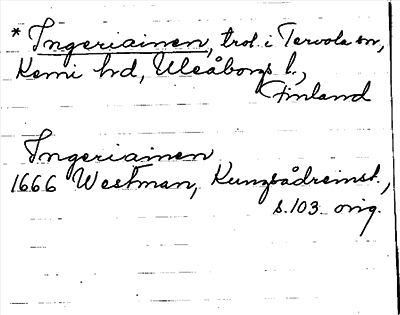 * Ingeriainen, trol. i Tervola sn,
Kemi hd, Uleåborgs l.,
Finland
Ingeriainen
1666 Westman, Kungsådreinst.,
s. 103 orig.